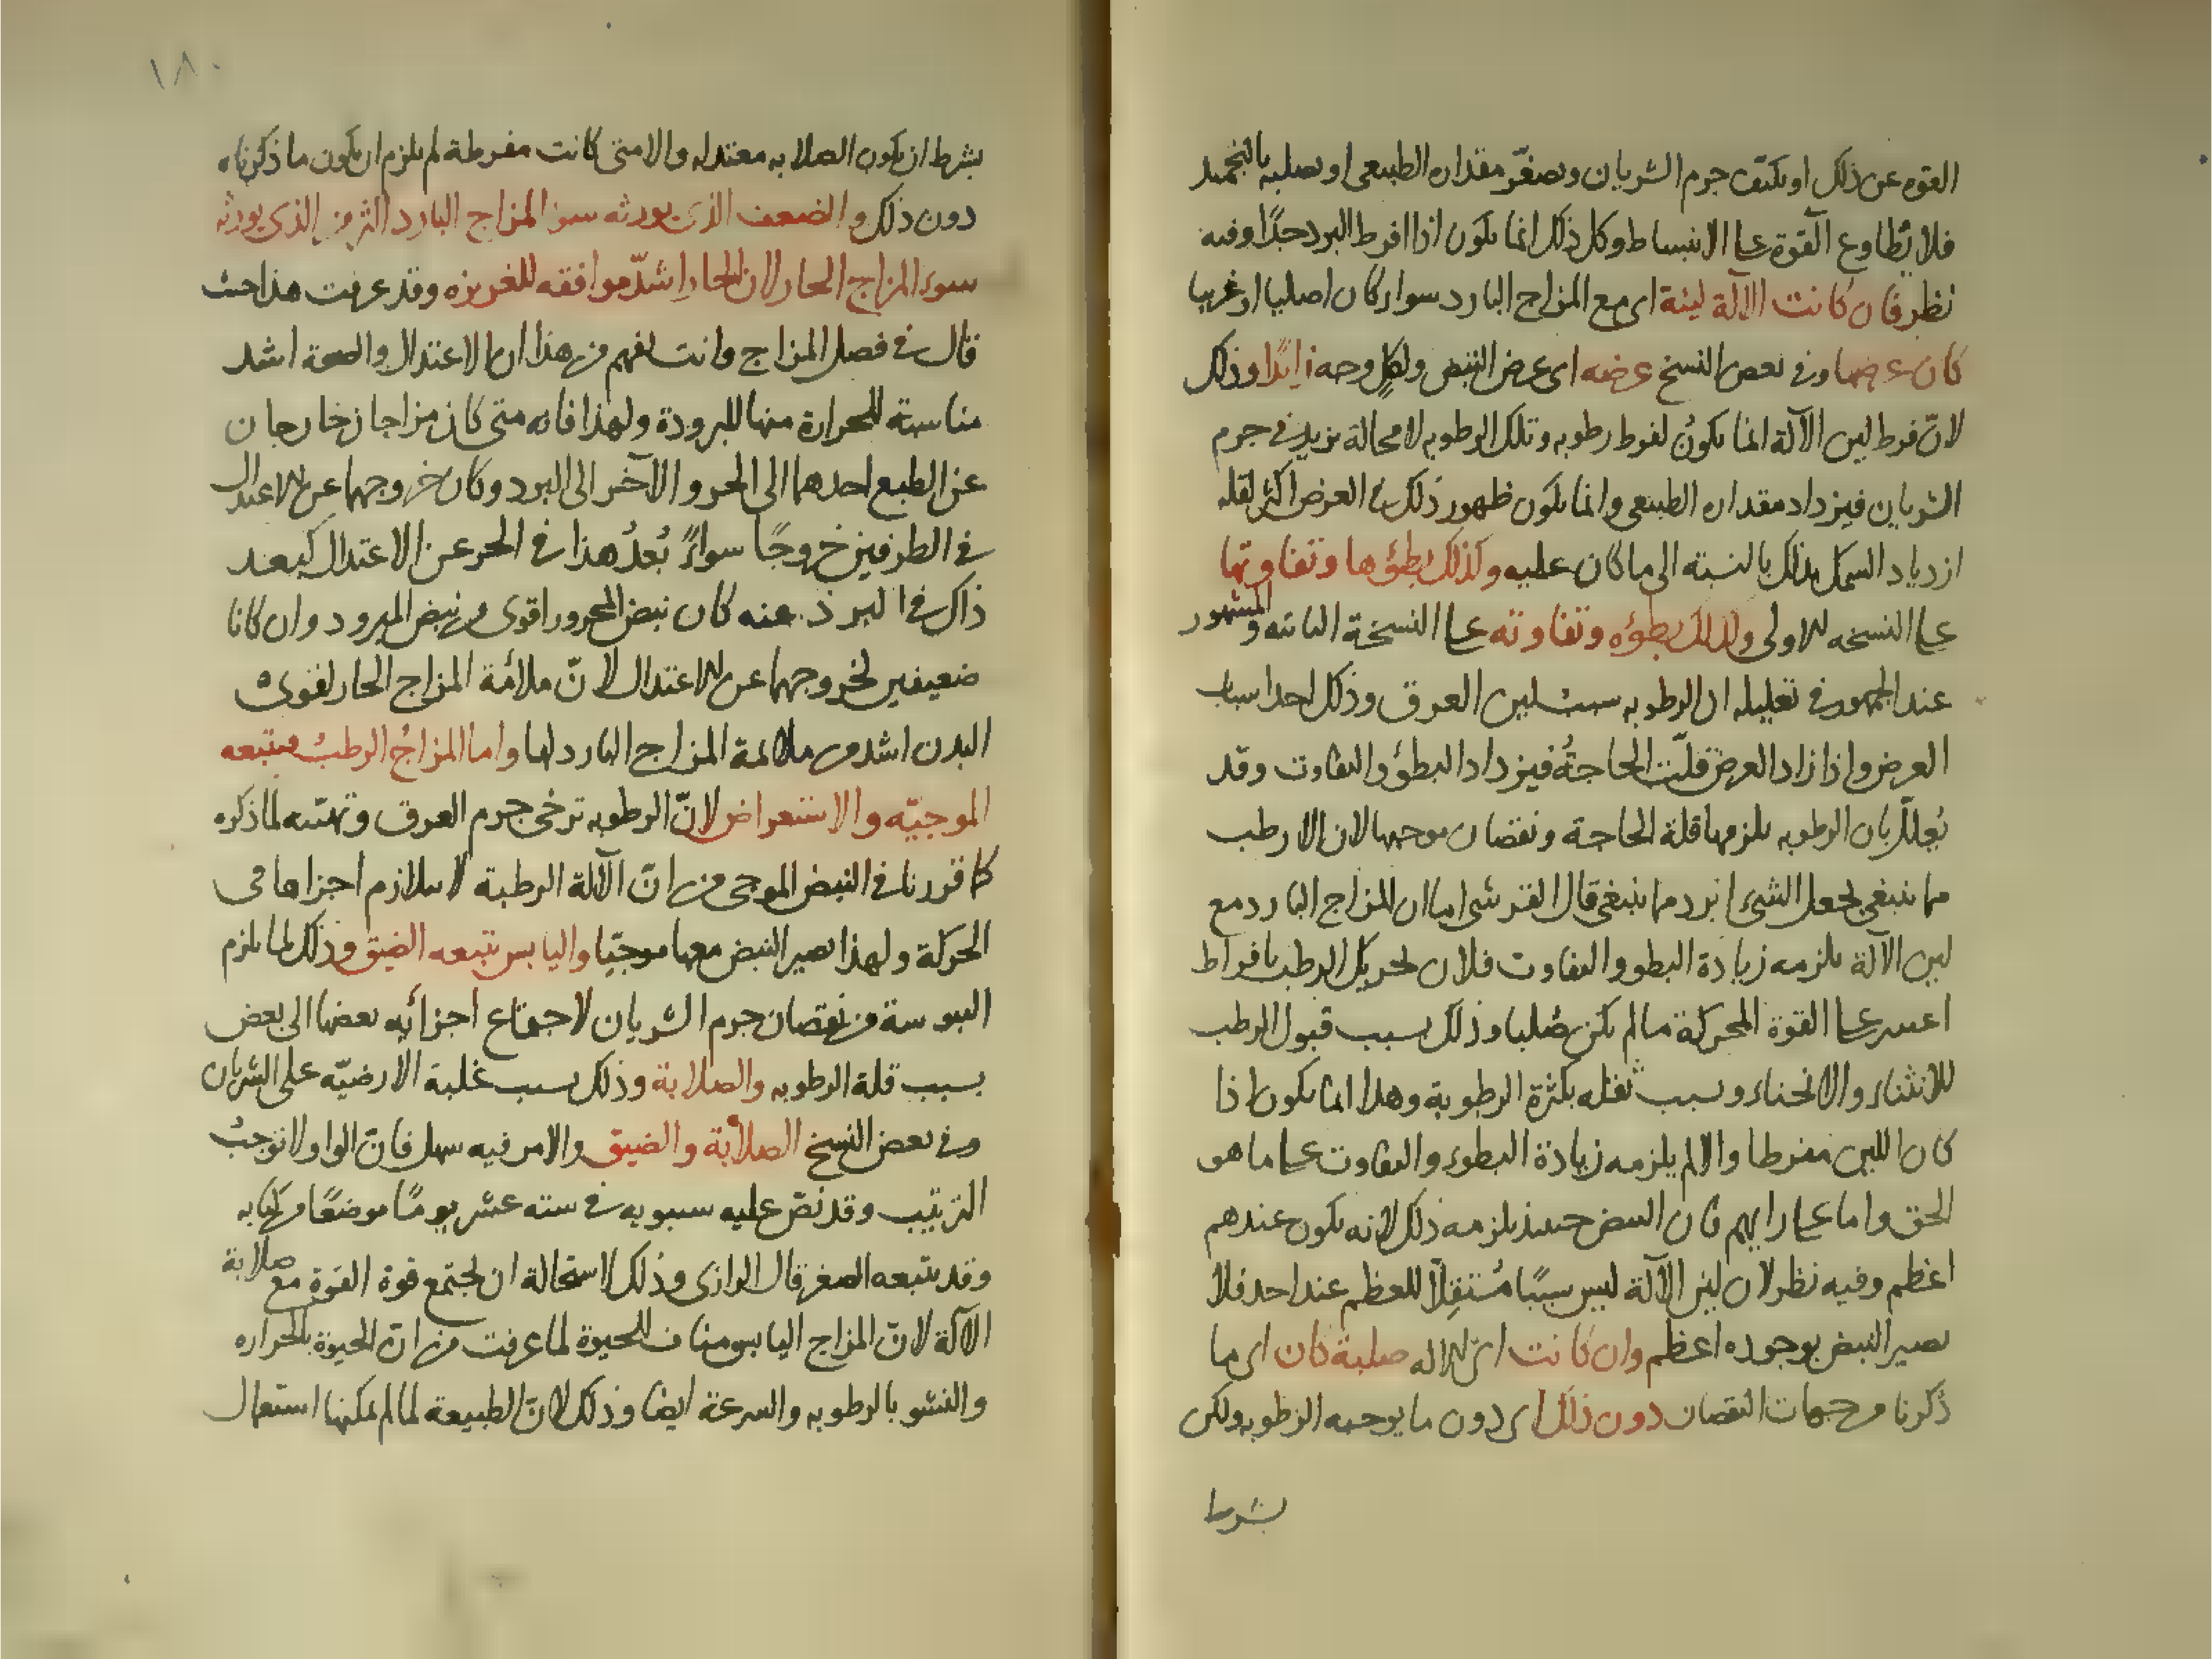 القوه عن ذلك او يكثف جرم الشريان ويصغّر مقداره الطبيعى او يصلبه بالتجميد
فلا يُطاوع القوة على الانبساط وكل ذلك انما يكون اذا افرط البرد جدًّا وفيه
نظر فان كانت الآلة لينة اى مع المزاج البارد سواء كان اصليا او غريبا
كان عرضها وفى بعض النسخ عرضه اى عرض النبض ولكلٍ وجه زايدًا وذلك
لانّ فرط لين الآلة انما يكونُ لفرط رطوبه وتلك الرطوبه لا محالة تزيد فى جرم
الشريان فيزداد مقداره الطبيعى وانما يكون ظهور ذلك فى العرض اكثر لقله
ازدياد السمك بذلك بالنسبة الى ما كان عليه وكذلك بطؤها وتفاوتها
على النسخه الاولى وكذلك بطؤه وتفاوته على النسخة الثانيه والمشهور
عند الجمهور فى تعليله ان الرطوبه سبب لين العرق وذلك احد اسباب
العرض واذا زاد العرض قلّت الحاجةُ فيزداد البطؤ والتفاوت وقد
يُعلّل بان الرطوبه يلزمها قلة الحاجة ونقصان موجبها لان الارطب
مما ينبغى يجعل الشىء ابرد مما ينبغى قال القرشى اما ان المزاج البارد مع
لين الآلة يلزمه زيادة البطو والتفاوت فلان تحريك الرطب بافراط
اعسر على القوة المحركة ما لم يكن صُلبا وذلك بسبب قبول الرطب
للانثناء والانحناء وبسبب ثقله بكثرة الرطوبة وهذا انما يكون اذا
كان اللين مفرطا والا لم يلزمه زيادة البطوء والتفاوت على ما هو
الحق واما على رايهم فان النبض حينئذ يلزمه ذلك لانه يكون عندهم
اعظم وفيه نظر لان لين الآلة ليس سببًا مُستقِلاً للعظم عند احد فلا
يصير النبض بوجوده اعظم وان كانت اى الاله صلبة كان اى ما
ذكرنا من جهات النقصان دون ذلك اى دون ما يوجبه الرطوبه ولكن
بشرط
١٨٠
بشرط ان يكون الصلابه معتدله والا متى كانت مفرطة لم يلزم ان يكون ما ذكرناه
دون ذلك والضعف الذى يورثه سوء المزاج البارد اكثر من الذى يورثه
سوء المزاج الحار لان الحار اشدّ موافقه للغريزه وقد عرفت هذا حيث
قال فى فصل المزاج وانت تفهم من هذا ان الاعتدال والصحة اشد
مناسبة للحرارة منها للبرودة ولهذا فانه متى كان مزاجان خارجان
عن الطبع احدهما الى الحر والآخر الى البرد وكان خروجهما عن الاعتدال
فى الطرفين خروجًا سواءً بُعدُ هذا فى الحر عن الاعتدال كبعد
ذاك فى البرد عنه كان نبض المحرور اقوى من نبض المبرود وان كانا
ضعيفين لخروجهما عن الاعتدال لانّ ملائمة المزاج الحار لقوى
البدن اشد من ملائمة المزاج البارد لها واما المزاجُ الرطبُ فيتبعه
الموجيّه والاستعراض لانّ الرطوبه ترخى جرم العرق وتهيّئه لما ذكره
كما قررنا فى النبض الموجى من انّ الآلة الرطبة لا يتلازم اجزاها فى
الحركة ولهذا يصير النبض معها موجيّا واليابس يتبعه الضيق وذلك لما يلزم
اليبوسة من نقصان جرم الشريان لاجتماع اجزائه بعضها الى بعض
بسبب قلة الرطوبه والصلابة وذلك بسبب غلبة الارضيّه على الشريان
وفى بعض النسخ الصلابة والضيق والامر فيه سهل فانّ الواو لا توجبُ
الترتيب وقد نصّ عليه سيبويه فى سته عشر موضعًا من كتابه
وقد يتبعه الصغر قال الرازى وذلك لاستحالة ان يجتمع قوة القوة مع صلابة
الآلة لانّ المزاج اليابس مناف للحيوة لما عرفت من انّ الحيوة بالحراره
والنشو بالرطوبه والسرعة ايضا وذلك لانّ الطبيعة لما لم يمكنها استعمال